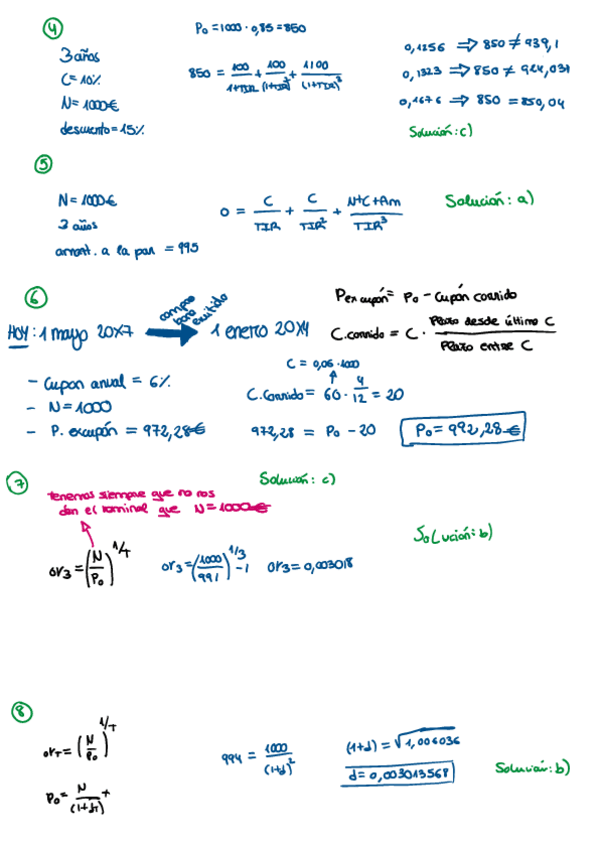 4
P₀ = 1000 · 0,85 = 850
3 años
C = 10%
N = 1000€
descuento = 15%
850 = 100/(1+TIR) + 100/(1+TIR)² + 1100/(1+TIR)³
0,1256 ⇒ 850 ≠ 939,1
0,1323 ⇒ 850 ≠ 924,031
0,1676 ⇒ 850 = 850,04
Solución: c)
5
N = 1000€
3 años
amort. a la par = 995
0 = C/TIR + C/TIR² + N+C+Am/TIR³
Solución: a)
6
HOY: 1 mayo 20X7
compra bono emitido
1 enero 20X4
Pexcupón = P₀ - Cupón corrido
C.corrido = C · Plazo desde último C / Plazo entre C
- Cupon anual = 6%
- N = 1000
- P. excupón = 972,28€
C = 0,06 · 1000
C.Corrido = 60 · 4/12 = 20
972,28 = P₀ - 20
P₀ = 992,28€
Solución: c)
7
tenemos siempre que no nos
dan el nominal que N = 1000€
0r3 = (N/P₀)^1/T
0r3 = (1000/991)^1/3 - 1
0r3 = 0,003018
Solución: b)
8
0rT = (N/P₀)^1/T
P₀ = N/(1+dT)^t
994 = 1000/(1+d)²
(1+d) = √1,006036
d = 0,003013568
Solución: b)